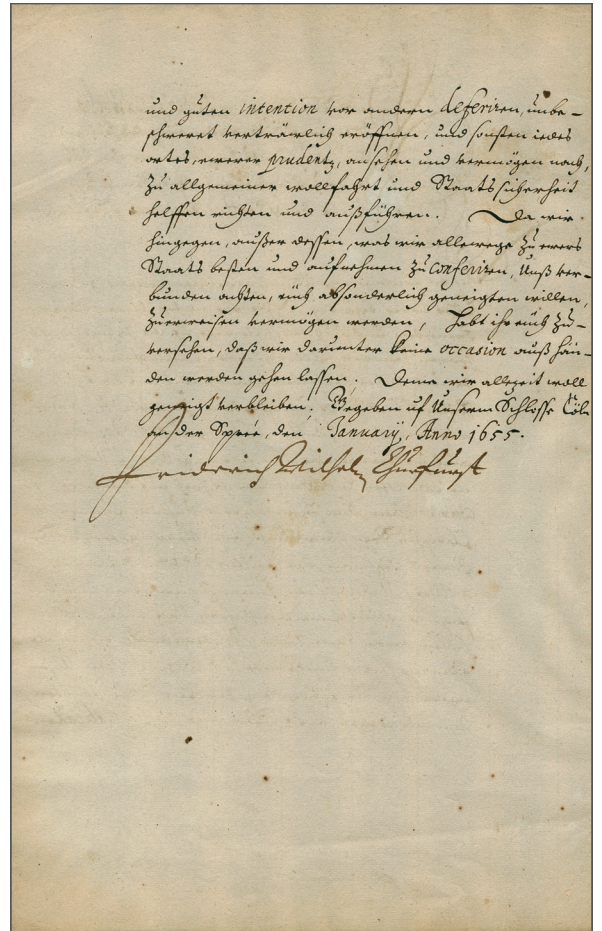 und guten intention vor andern deferiren, unbe-
schweret verträwlich eröffnen, und sonsten iedes
ortes, ewerer prudentz, ansehen und vermögen nach,
zu allgemeiner wollfahrt und Staats sicherheit
helffen richten und außführen. Da wir
hingegen, außer dessen, was wir allewege zu ewers
Staats besten und aufnehmen zu conferiren, Unß ver-
bunden achten, euch absonderlich geneigten willen,
zuerweisen vermögen werden, habt ihr euch zu-
versehen, daß wir darunter keine occasion auß hän-
den werden gehen lassen. Denn wir allezeit woll
geneigt verbleiben. Gegeben uf Unserm Schlosse Cöln
an der Sprée, den Januarÿ, Anno 1655.
Friderich Wilhelm Churfurst